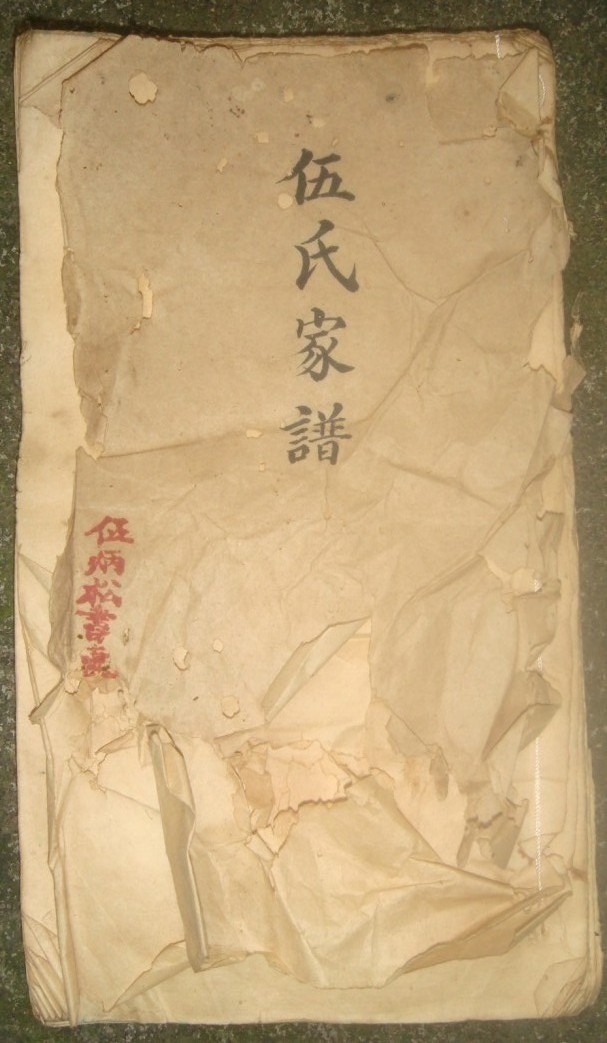 伍氏家譜
伍炳松書